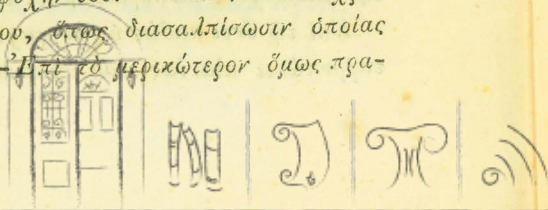 ου, ὅπως διασαλπίσωσιν ὁποίας
-Ἐπὶ τὸ μερικώτερον ὅμως πρα-